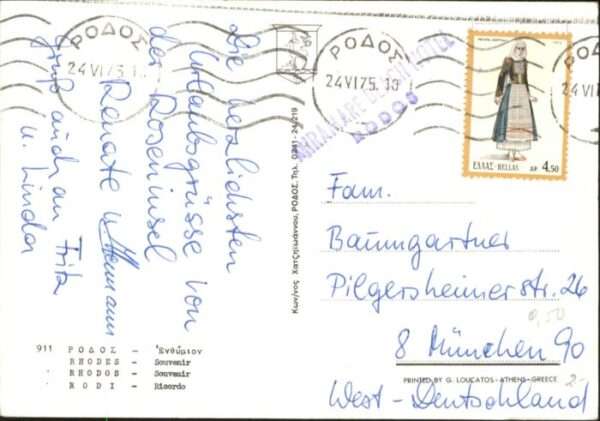 Die herzlichsten
Urlaubsgrüsse von
der Roseninsel
Renate u. Hermann
Gruß auch an Fritz
u. Linda
911 ΡΟΔΟΣ - Ἐνθύμιον
RHODES - Souvenir
RHODOS - Souvenir
RODI - Ricordo
Κων/νος Χατζηϊωάννου, ΡΟΔΟΣ, Τηλ. 0241-24/219
ΡΟΔΟΣ
24 VI 75. 1
ΡΟΔΟΣ
24 VI 75. 10
MIRAMARE BEACH HOTEL
RODOS
ΕΛΛΑΣ-HELLAS ΔΡ 4.50
24 VI
Fam.
Baumgartner
Pilgersheimerstr. 26
8 München 90
West-Deutschland
PRINTED BY G. LOUCATOS-ATHENS-GREECE
0,50
2-